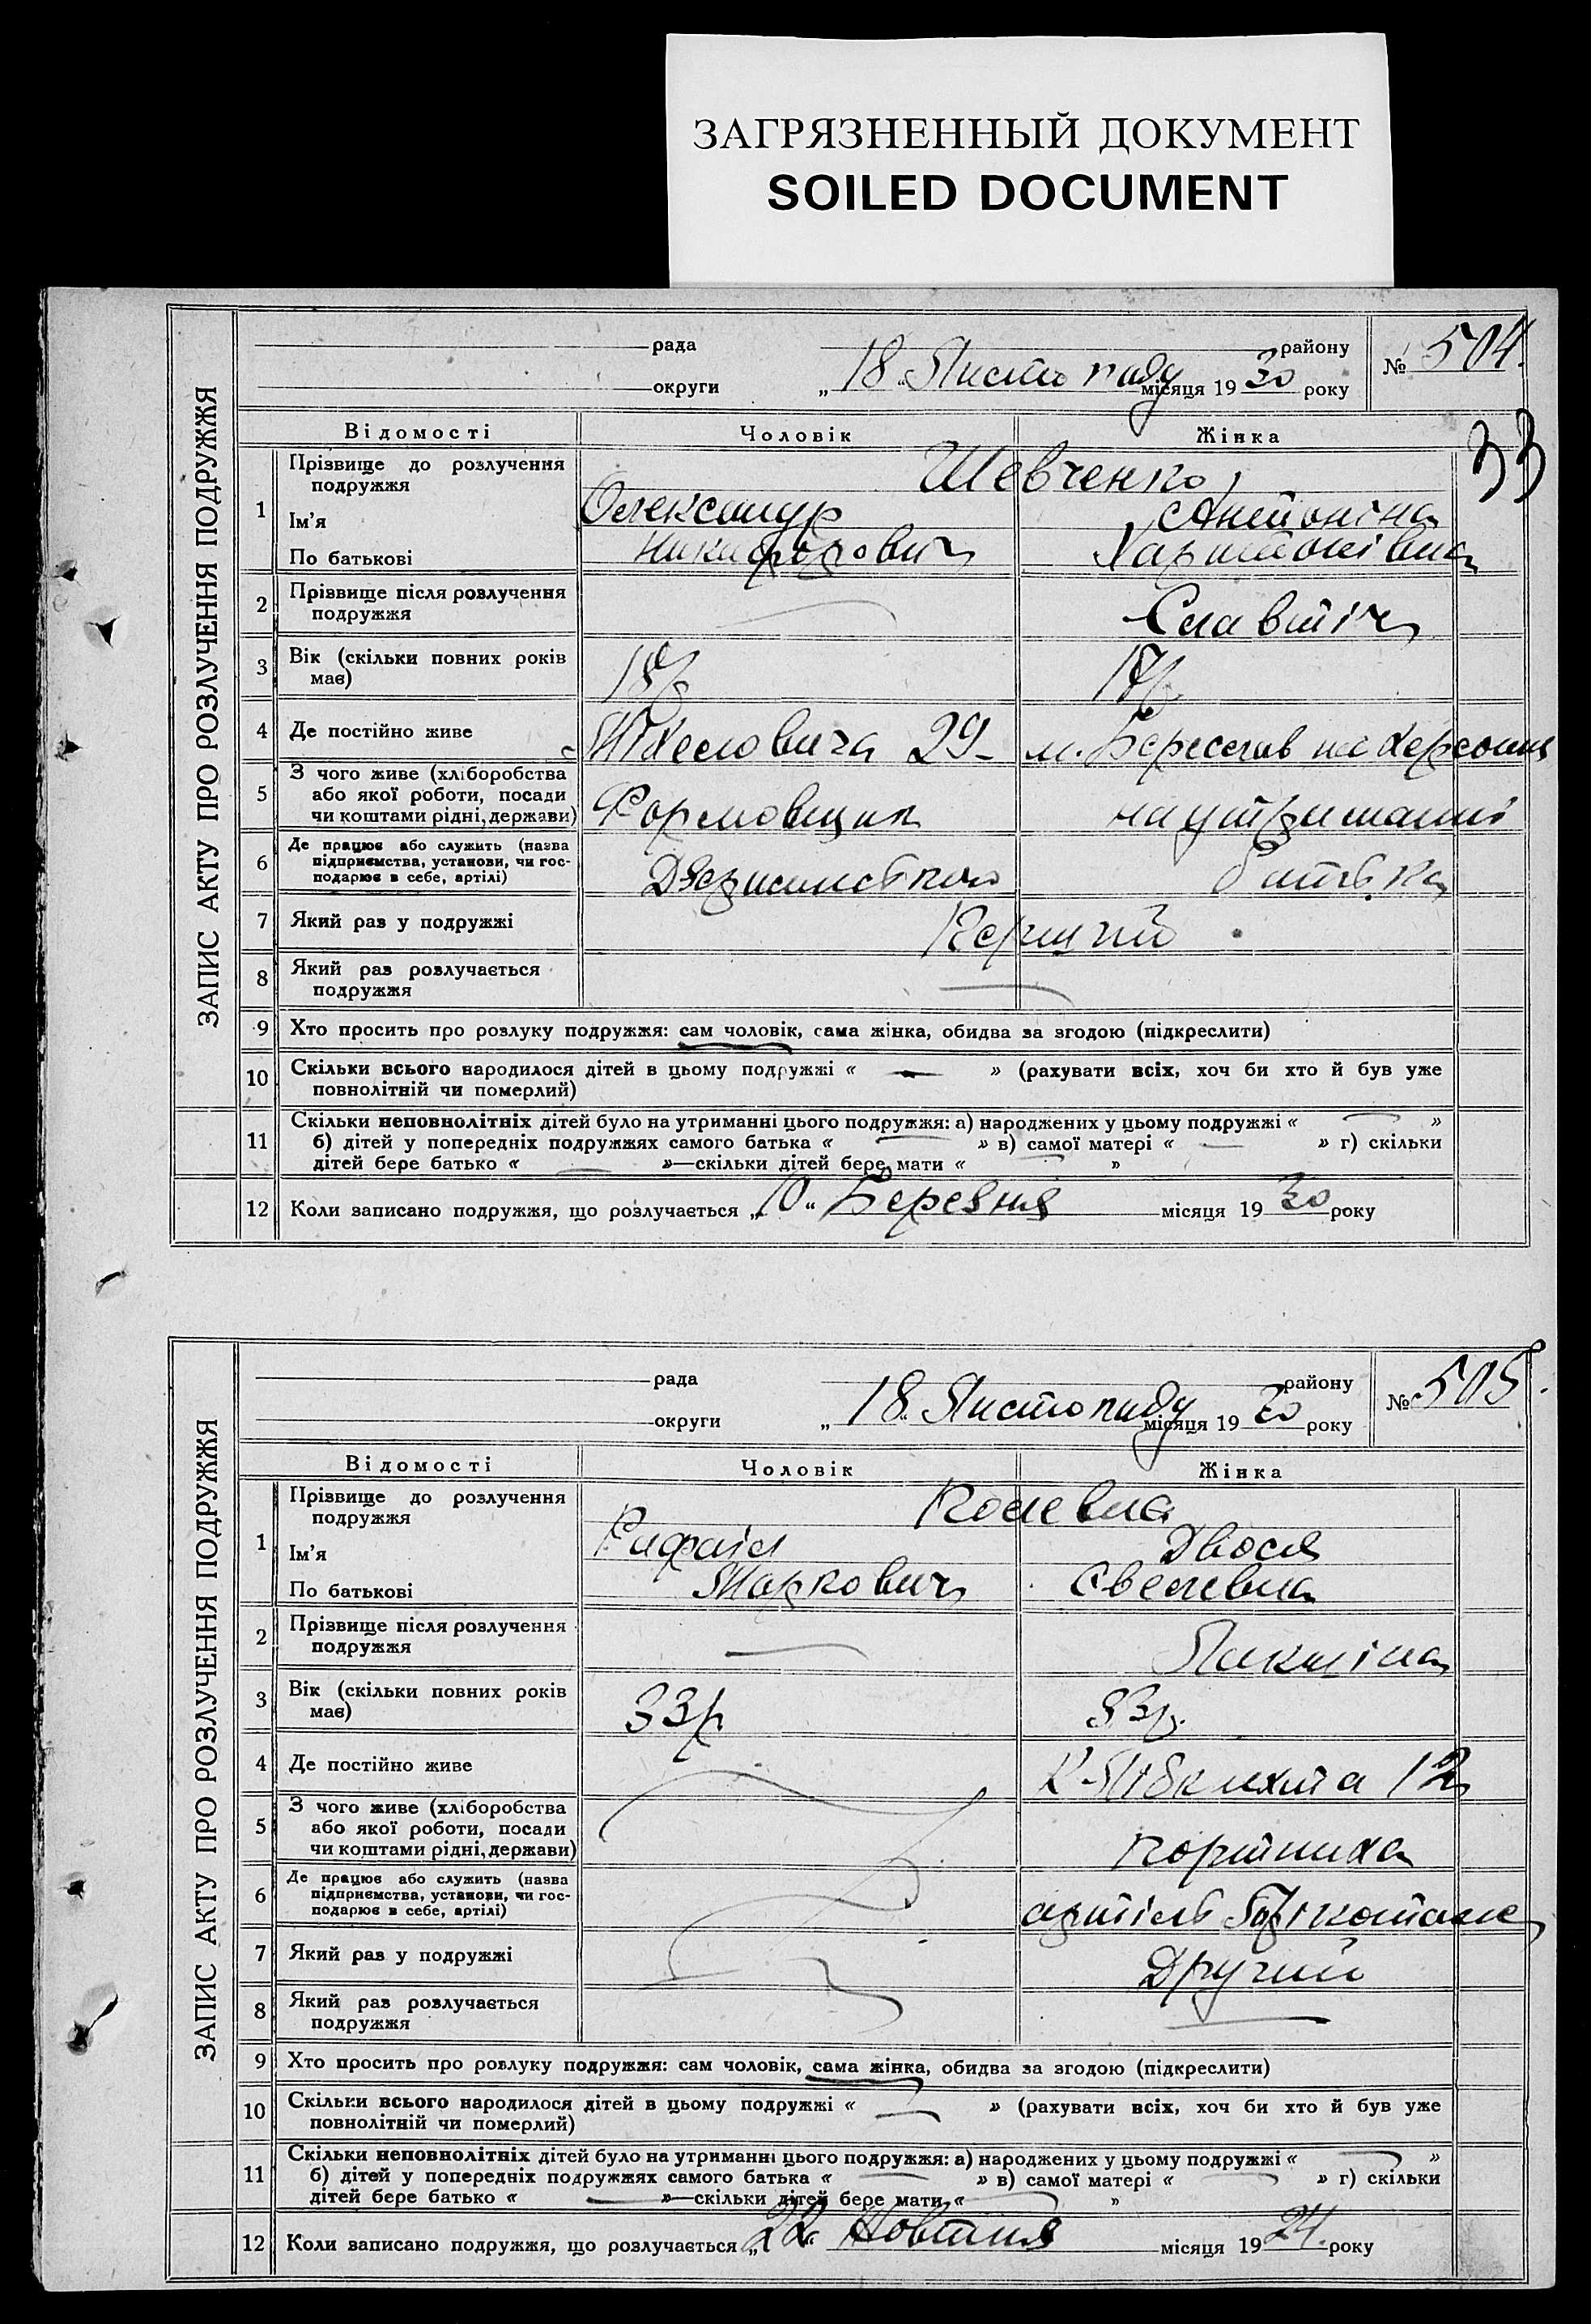 ЗАГРЯЗНЕННЫЙ ДОКУМЕНТ
SOILED DOCUMENT
ЗАПИС АКТУ ПРО РОЗЛУЧЕННЯ ПОДРУЖЖЯ
рада району
округи „18" Листопаду місяця 1930 року
№ 504.
33
Відомості Чоловік Жінка
1 Прізвище до розлучення подружжя Шевченко
Ім'я Олександр Антоніна
По батькові Никифорович Харитонівна
2 Прізвище після розлучення
подружжя
3 Вік (скільки повних років
має) 18р 17р
4 Де постійно живе 29 м. Береслав на Херсонщ
5 З чого живе (хліборобства
або якої роботи, посади
чи коштами рідні, держави) Формовщик на утриманні
6 Де працює або служить (назва
підприємства, установи, чи гос-
подарює в себе, артілі) батька
7 Який раз у подружжі Перший
8 Який раз розлучається
подружжя
9 Хто просить про розлуку подружжя: сам чоловік, сама жінка, обидва за згодою (підкреслити)
10 Скільки всього народилося дітей в цьому подружжі « — » (рахувати всіх, хоч би хто й був уже
повнолітній чи померлий)
11 Скільки неповнолітніх дітей було на утриманні цього подружжя: а) народжених у цьому подружжі « — »
б) дітей у попередніх подружжях самого батька « — » в) самої матері « — » г) скільки
дітей бере батько « — »—скільки дітей бере мати « — »
12 Коли записано подружжя, що розлучається „10" Березня місяця 1930 року
ЗАПИС АКТУ ПРО РОЗЛУЧЕННЯ ПОДРУЖЖЯ
рада району
округи „18" Листопаду місяця 1930 року
№ 505.
Відомості Чоловік Жінка
1 Прізвище до розлучення
подружжя
Ім'я Рафаіл Двося
По батькові Маркович
2 Прізвище після розлучення
подружжя
3 Вік (скільки повних років
має) 33р 33р.
4 Де постійно живе К-Лібкнехта 12
5 З чого живе (хліборобства
або якої роботи, посади
чи коштами рідні, держави) кортниха
6 Де працює або служить (назва
підприємства, установи, чи гос-
подарює в себе, артілі) артіль
7 Який раз у подружжі Другий
8 Який раз розлучається
подружжя —
9 Хто просить про розлуку подружжя: сам чоловік, сама жінка, обидва за згодою (підкреслити)
10 Скільки всього народилося дітей в цьому подружжі « — » (рахувати всіх, хоч би хто й був уже
повнолітній чи померлий)
11 Скільки неповнолітніх дітей було на утриманні цього подружжя: а) народжених у цьому подружжі « — »
б) дітей у попередніх подружжях самого батька « — » в) самої матері « — » г) скільки
дітей бере батько « — »—скільки дітей бере мати « — »
12 Коли записано подружжя, що розлучається „22" Жовтня місяця 1924. року